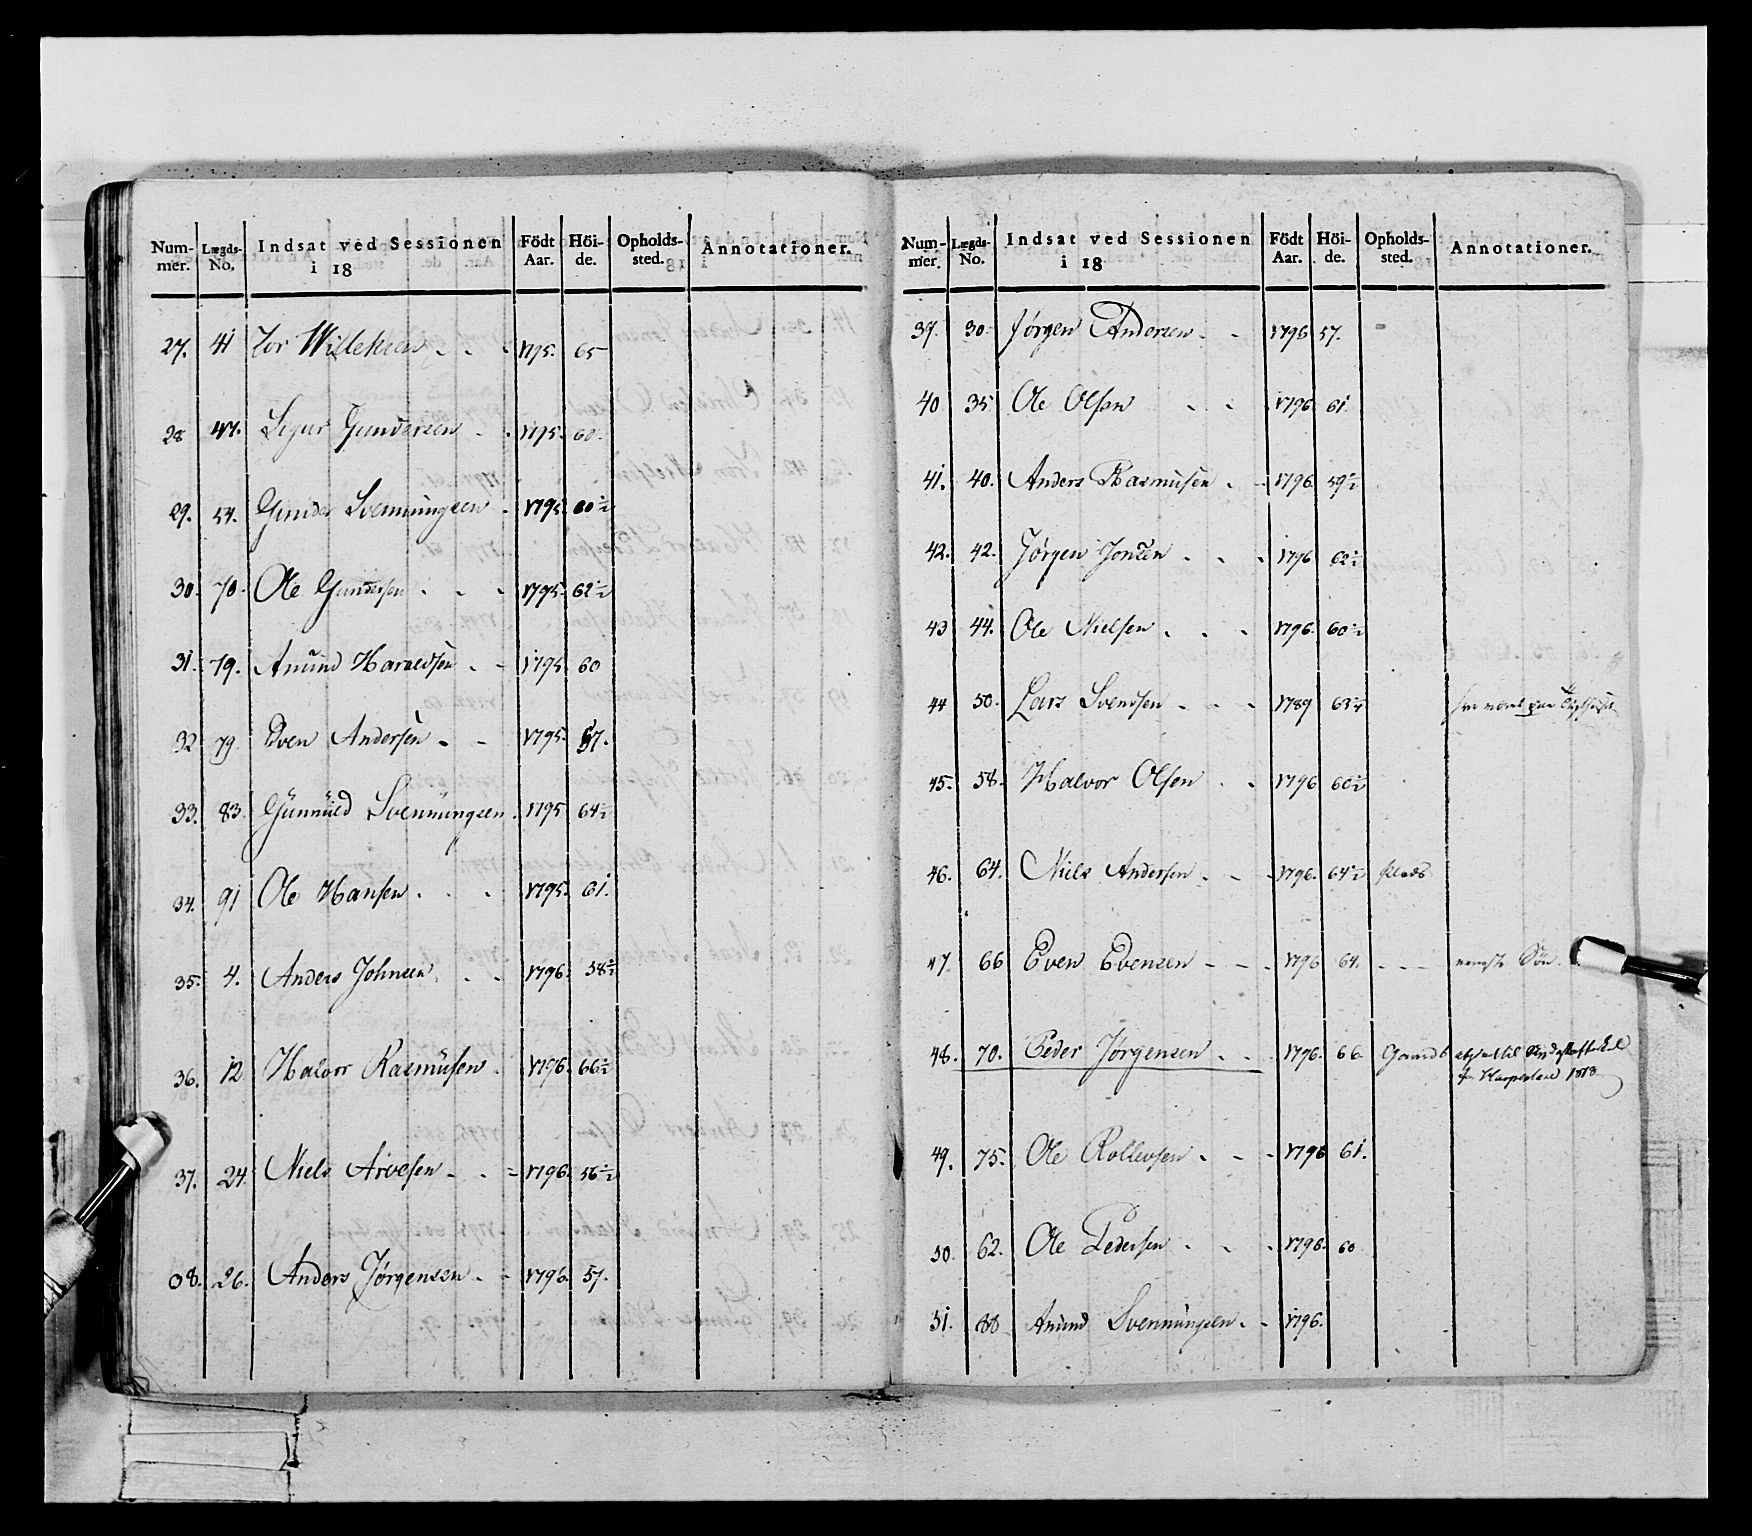 Num- Lægds- Indsat ved Sessionen Födt Höi- Opholds- Annotationer.
mer. No. i 18 Aar. de. sted.
27. 41 Tor Willeksen 1795. 65
28 47. Sigur Gundersen 1795. 60.
29. 54. Gunder Svennungsen 1795 60½
30. 70. Ole Gundersen 1795. 62½
31. 79. Anund Haraldsen 1795 60
32 79 Even Andersen 1795. 57.
33. 83. Gunnuld Svennungsen 1795 64½
34. 91 Ole Hansen 1795. 61.
35. 4. Anders Johnsen 1796. 58½
36. 12 Halvor Rasmusen 1796. 66½
37. 24. Niels Arvesen 1796. 56½
38. 26. Anders Jørgensen 1796. 57.
Num- Lægds- Indsat ved Sessionen Födt Höi- Opholds- Annotationer.
mer. No. i 18 Aar. de. sted.
39. 30. Jørgen Andersen 1796 57.
40 35 Ole Olsen 1796 61.
41. 40. Anders Rasmusen 1796. 59½
42. 42. Jørgen Jonsen 1796 62½
43 44. Ole Nielsen 1796. 60½
44 50. Lars Svendsen 1789 63¼
45. 58. Halvor Olsen 1796 60½
46. 64. Niels Andersen 1796. 64½
47. 66 Even Evensen 1796 64. - - - Søn.
48. 70. Peder Jørgensen 1796. 66. til
1818
49. 75. Ole Rollevsen 1796 61.
50. 62. Ole Pedersen 1796. 60
51. 88 Anund Svennungsen 1796.